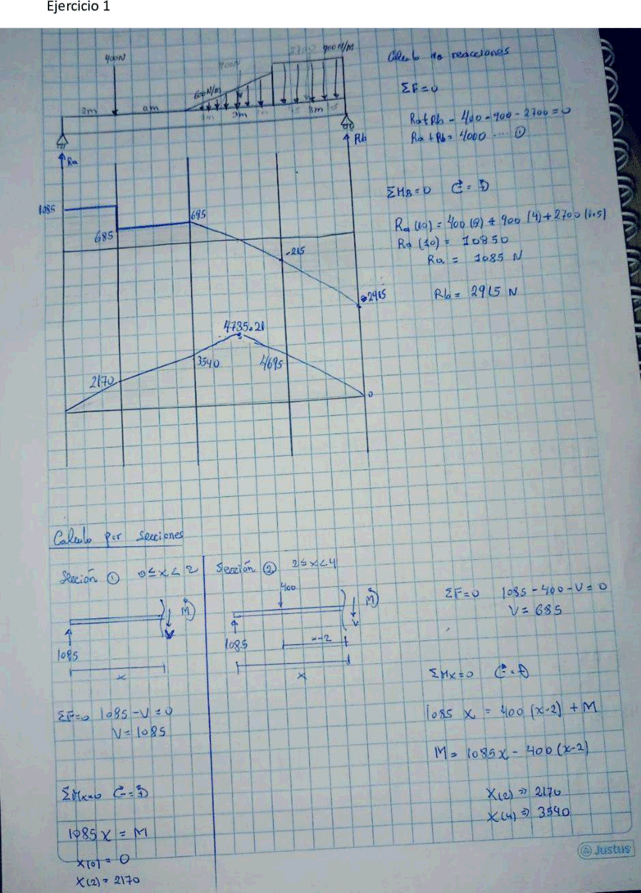 Ejercicio 1
400N
900N
600 N/m
900 N/m
2m
3m
3m
Ra
Rb
Calculo de reacciones
ΣF=0
Ra+Rb - 400 - 900 - 2700 = 0
Ra + Rb = 4000 ---- ①
ΣMB=0
Ra (10) = 400 (8) + 900 (4) + 2700 (1.5)
Ra (10) = 10850
Ra = 1085 N
Rb = 2915 N
1085
685
685
-215
-2915
4735.21
2170
3540
4695
0
Calculo por Secciones
Sección ① 0≤x<2
M
V
1085
x
ΣF=0 1085-V=0
V=1085
ΣMx=0
1085x = M
x(0) = 0
x(2) = 2170
Sección ② 2≤x<4
400
M
V
1085
x-2
x
ΣF=0 1085-400-V=0
V=685
ΣMx=0
1085 x = 400 (x-2) + M
M= 1085x - 400 (x-2)
x(2) ⇒ 2170
x(4) ⇒ 3540
@ Justus